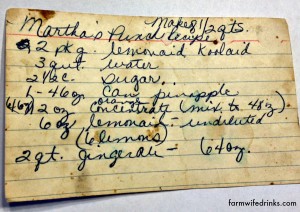 Makes 1 1/2 gts.
Martha's Punch Recipe
2 pkg. lemonaid Koolaid
3 qut. water
2 1/2 c. sugar.
1- 46 oz Can pineapple
12 oz concentrate (mix to 48 oz)
orange
6 oz lemonaid - undiluted
(6 lemons)
2 qt. gingerale - 64 oz.
farmwifedrinks.com